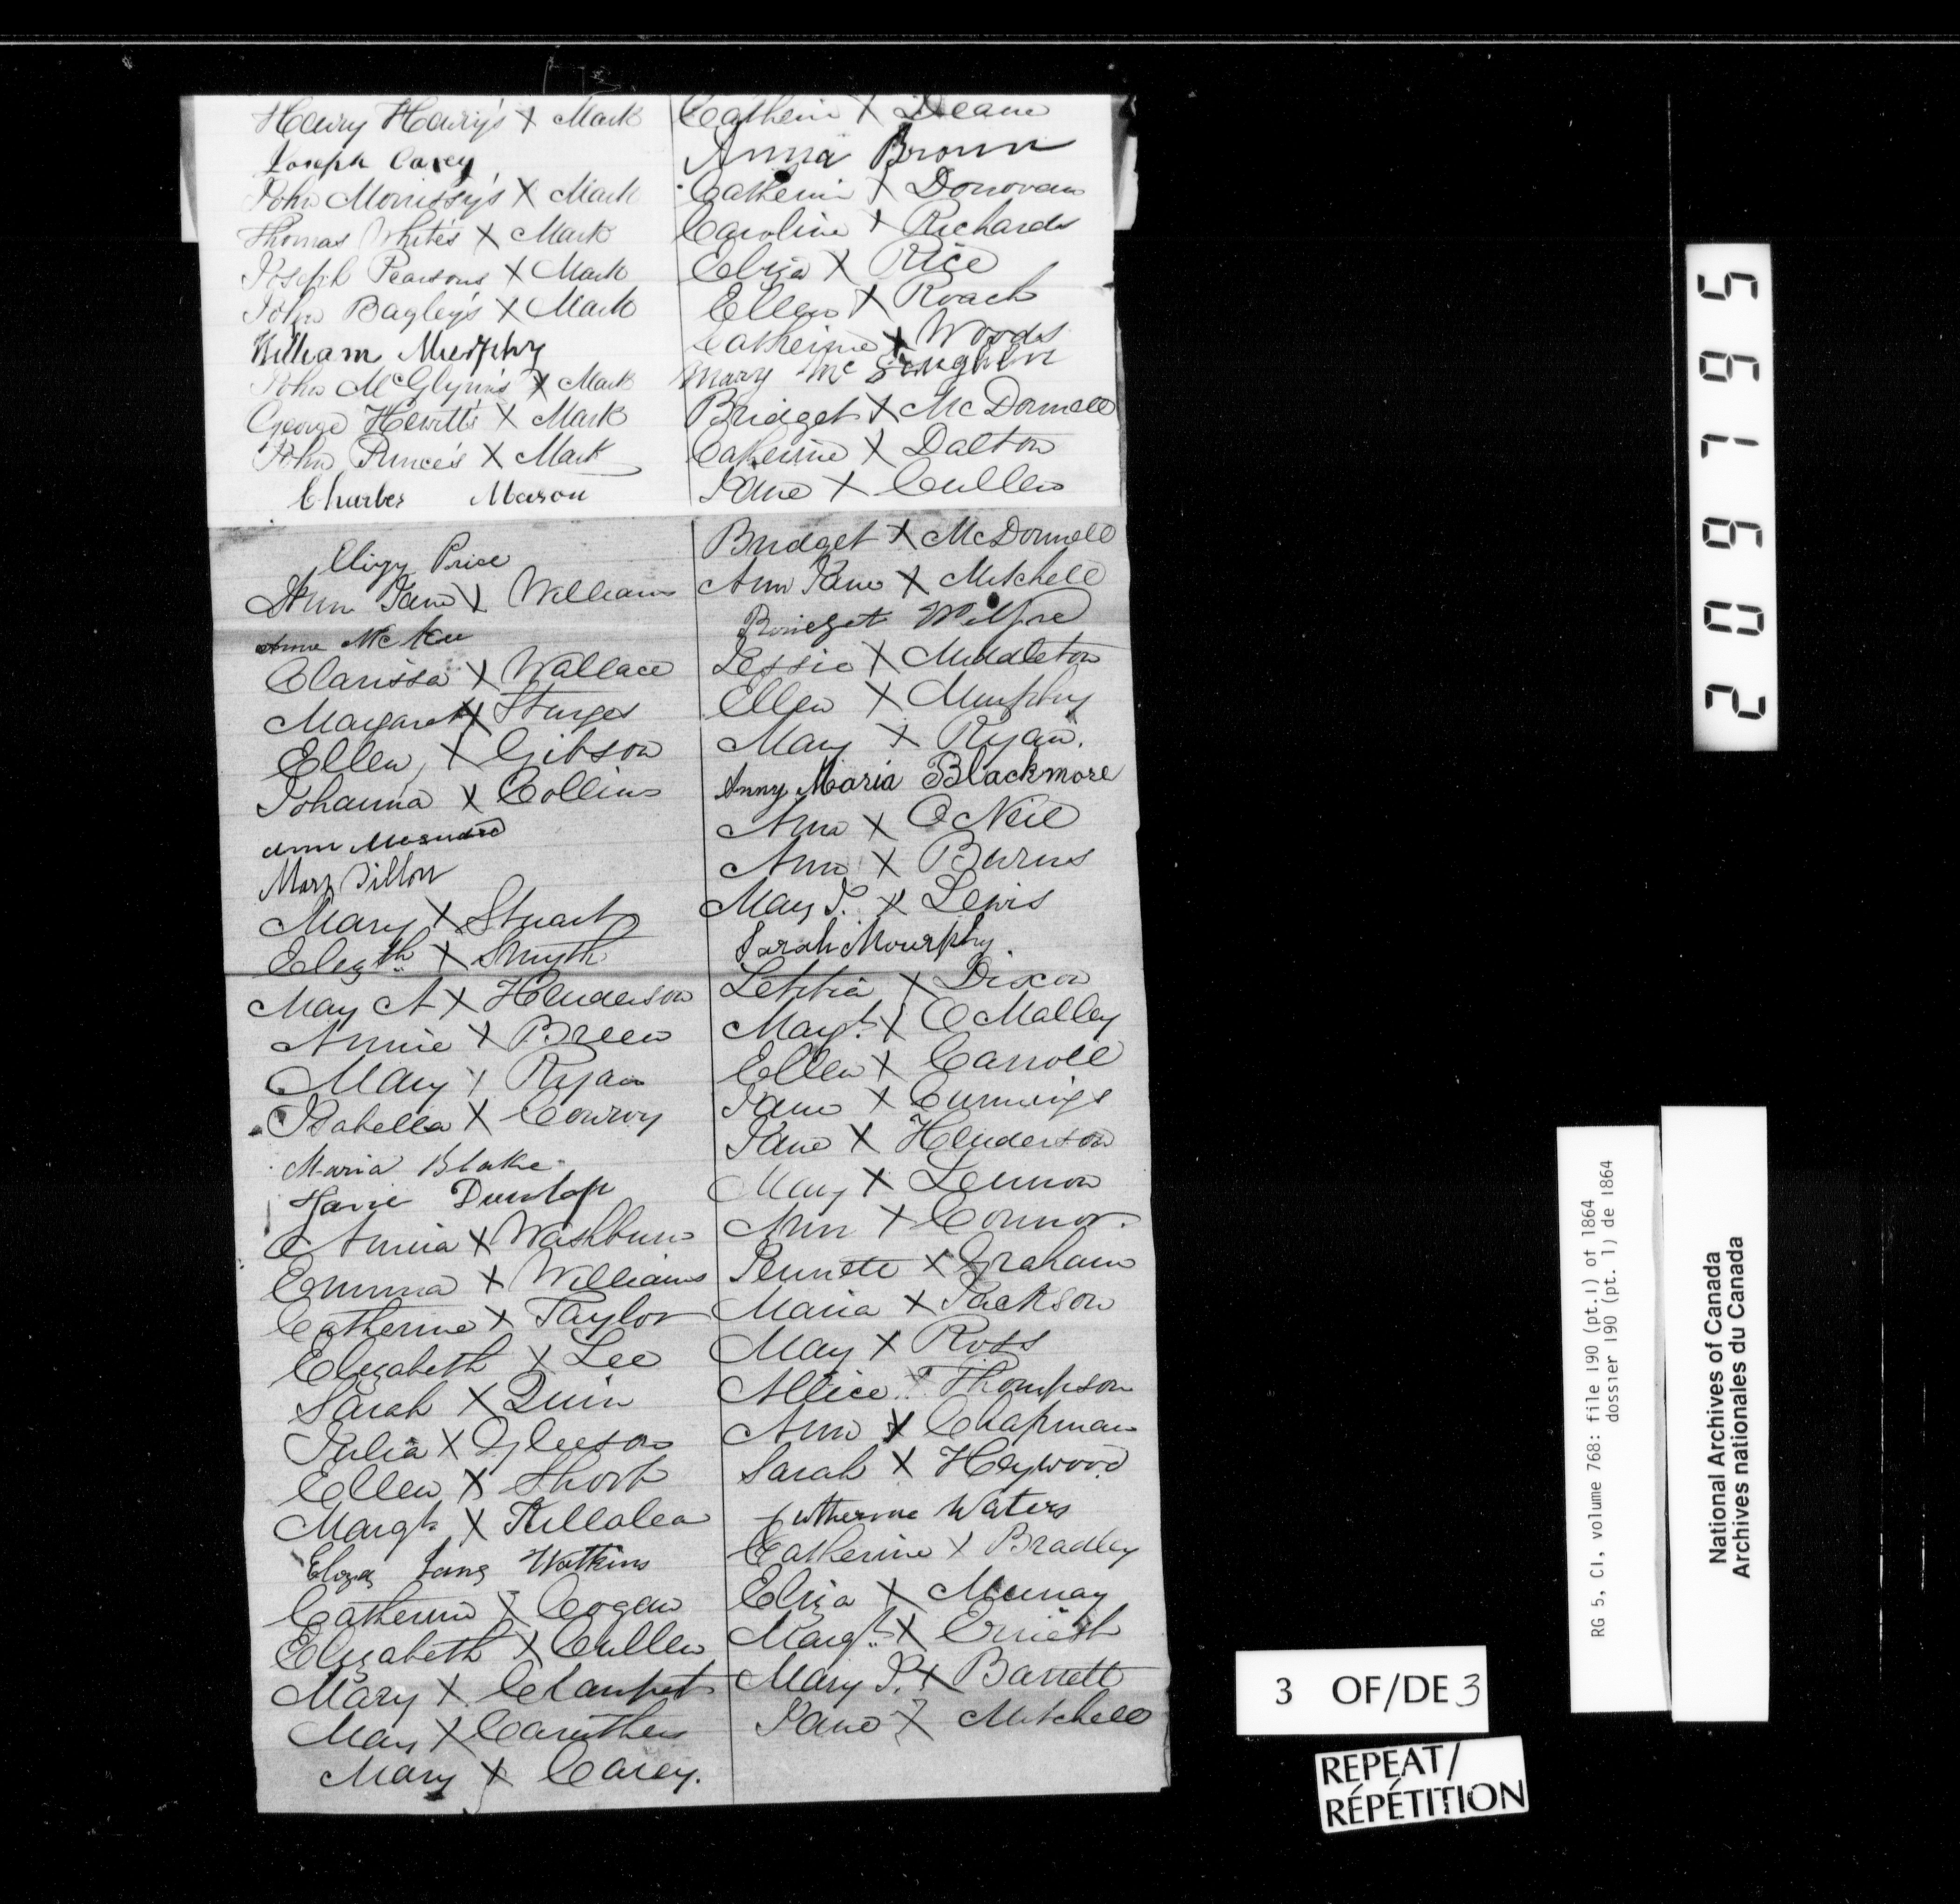 Henry Henry's X Mark
Joseph Carey
John Morrissy's X Mark
Thomas White's X Mark
Joseph Pearsons X Mark
John Bagley's X Mark
William Murphy
John McGlynn's X Mark
George Hewitt's X Mark
John Prince's X Mark
Charles Mason
Elizy Price
Ann Jane X Williams
Anne McKee
Clarissa X Wallace
Margaret X Sturges
Ellen X Gibson
Johanna X Collins
Ann
Mary Dillon
Mary X Stuart
Elezth X Smyth
Mary A X Henderson
Annie X Breen
Mary X Ryan
Isabella X Conroy
Maria Blake
Jane Dunlop
Annia X Washburn
Emma X Williams
Catherine X Taylor
Elizabeth X Lee
Sarah X Quin
Julia X Gleeson
Ellen X Short
Margt X Killalea
Eliza Jane Watkins
Catherine X Cogan
Elizabeth X Cullen
Mary X Clanpet
Mary X Caruthers
Mary X Carey.
Catherin X Deane
Anna Brown
Catherin X Donovan
Caroline X Richards
Eliza X Rice
Ellen X Roach
Catherine X Woods
Mary Mc
Bridget X McDonnell
Catherine X Dalton
Jane X Cullen
Bridget X McDonnell
Ann Jane X Mitchell
Bridget
Jessie X Middleton
Ellen X Murphy
Mary X Ryan.
Anny Maria Blackmore
Ann X O Neil
Ann X Burns
Mary J. X Lewis
Sarah Mourphy.
Letitia X Dixon
Margt. X O Malley
Ellen X Carroll
Jane X Cummings
Jane X Henderson
Mary X Lennon
Ann X Connor.
Jennett X Graham
Maria X Jackson
Mary X Ross
Allice X Thompson
Ann X Chapman
Sarah X Heywood
Catherine Waters
Catherine X Bradley
Eliza X Murray
Margt. X
Mary J. X Barrett
Jane X Mitchell
209795
RG 5, C1, volume 768: file 190 (pt.1) of 1864
dossier 190 (pt. 1) de 1864
National Archives of Canada
Archives nationales du Canada
3 OF/DE 3
REPEAT/
RÉPÉTITION